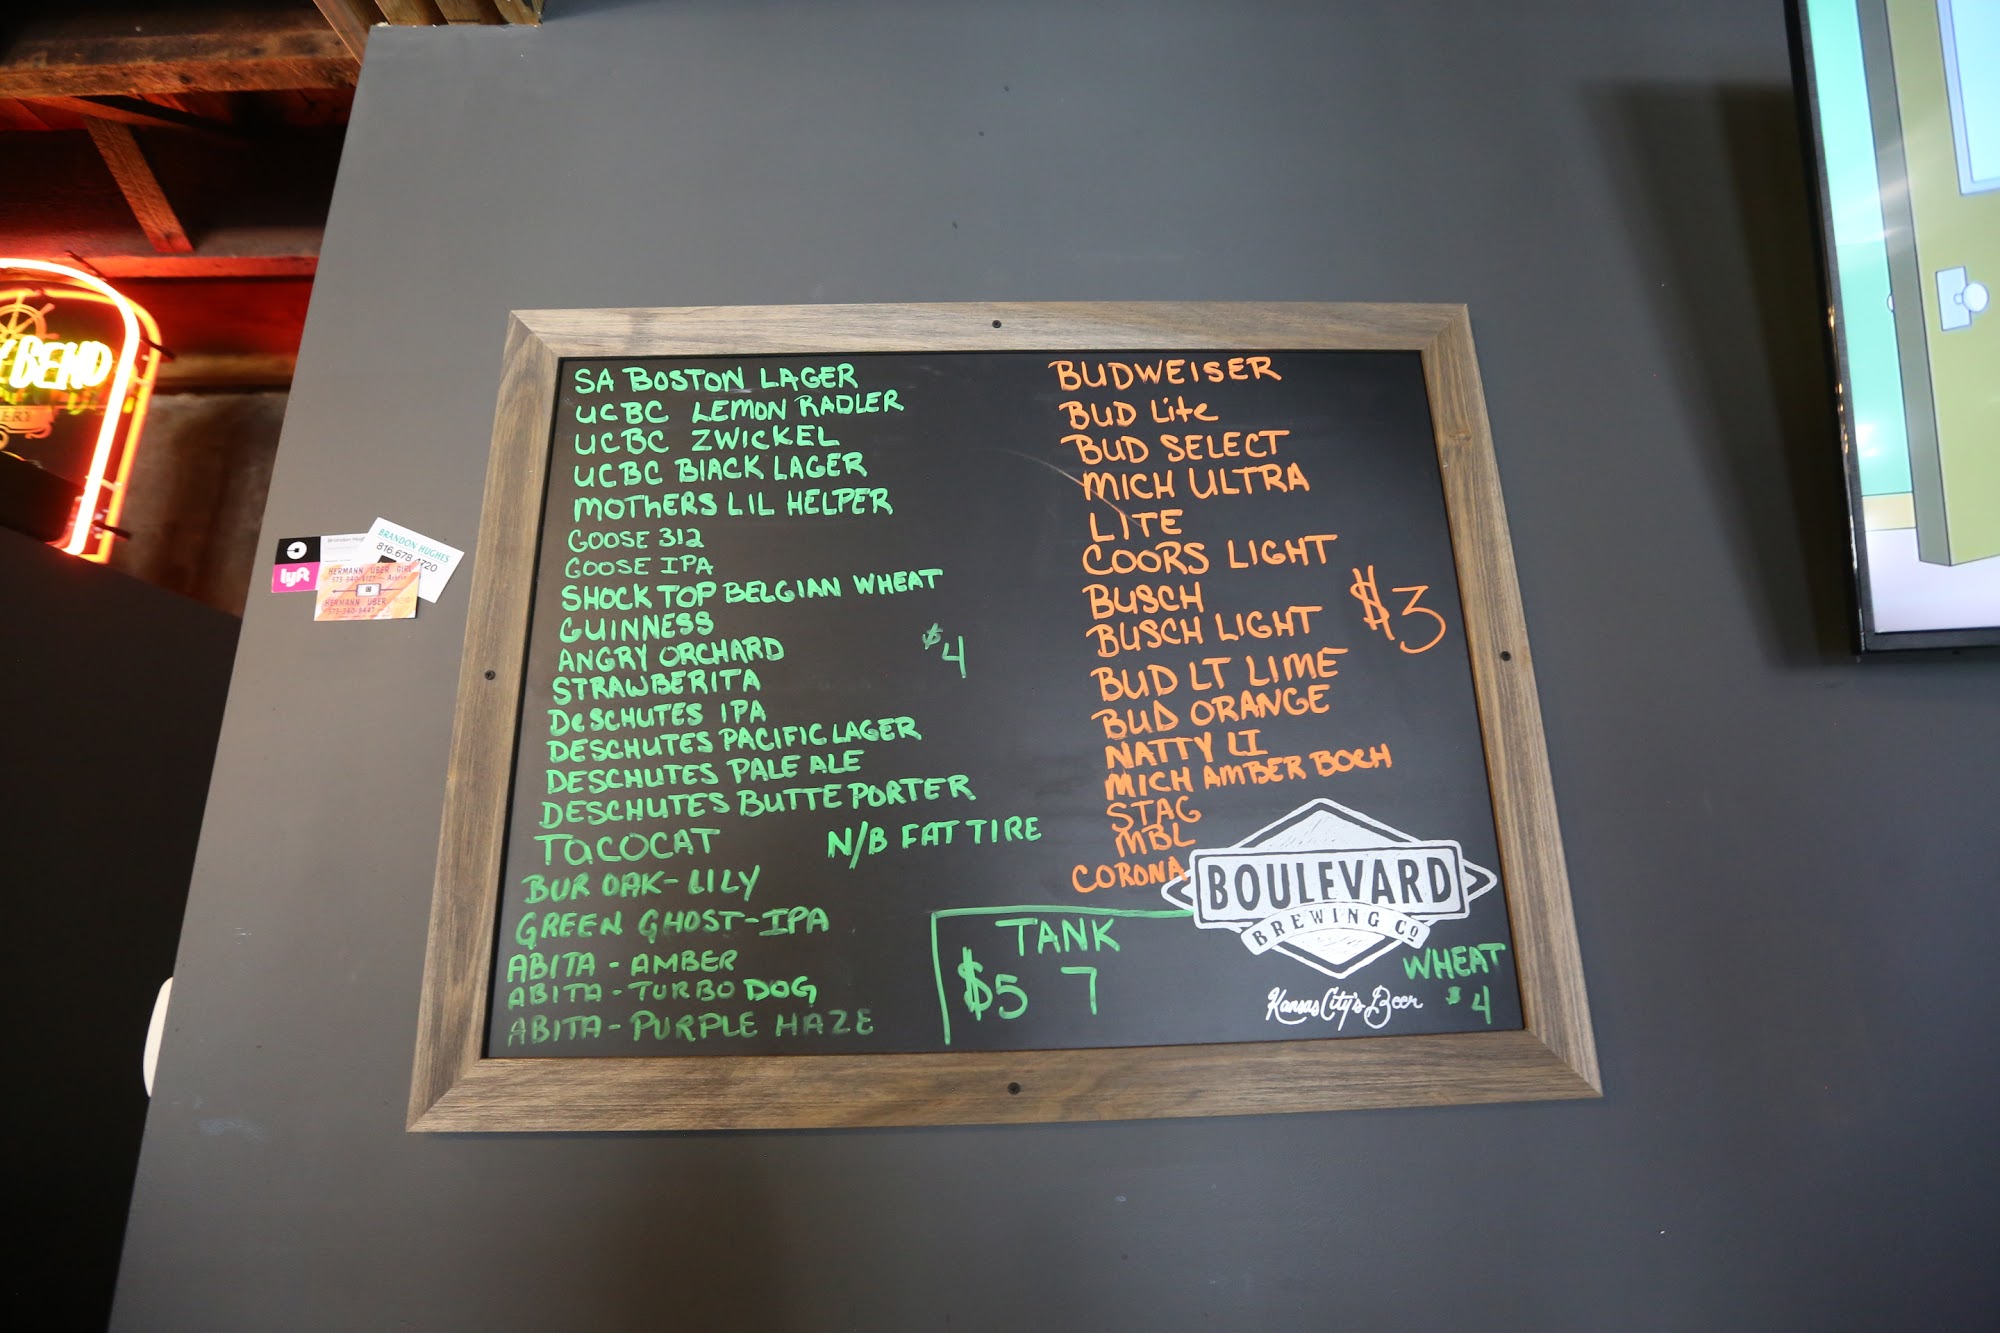 SA BOSTON LAGER
UCBC LEMON RADLER
UCBC ZWICKEL
UCBC BlACK LAGER
MOThERS LIL HELPER
GOOSE 312
GOOSE IPA
SHOCK TOP BELGIAN WHEAT
GUINNESS
ANGRY ORCHARD
STRAWBERITA
DeSCHUTES IPA
DESCHUTES PACIFIC LAGER
DESCHUTES PALE ALE
DESCHUTES BUTTE PORTER
TaCOCAT
BUR OAK-LILY
GREEN GHOST-IPA
ABITA - AMBER
ABITA - TURBO DOG
ABITA - PURPLE HAZE
$4
N/B FAT TIRE
BUDWEISER
BUD Lite
BUD SELECT
MICH ULTRA
LITE
COORS LIGHT
BUSCH
BUSCH LIGHT
BUD LT LIME
BUD ORANGE
NATTY LI
MICH AMBER BOCH
STAG
MBL
CORONA
$3
TANK
$5 7
BOULEVARD
BREWING CO
Kansas City's Beer
WHEAT
$4
BEND
lyft
BRANDON HUGHES
816.678
4720
HERMANN UBER GIRL
HERMANN UBER